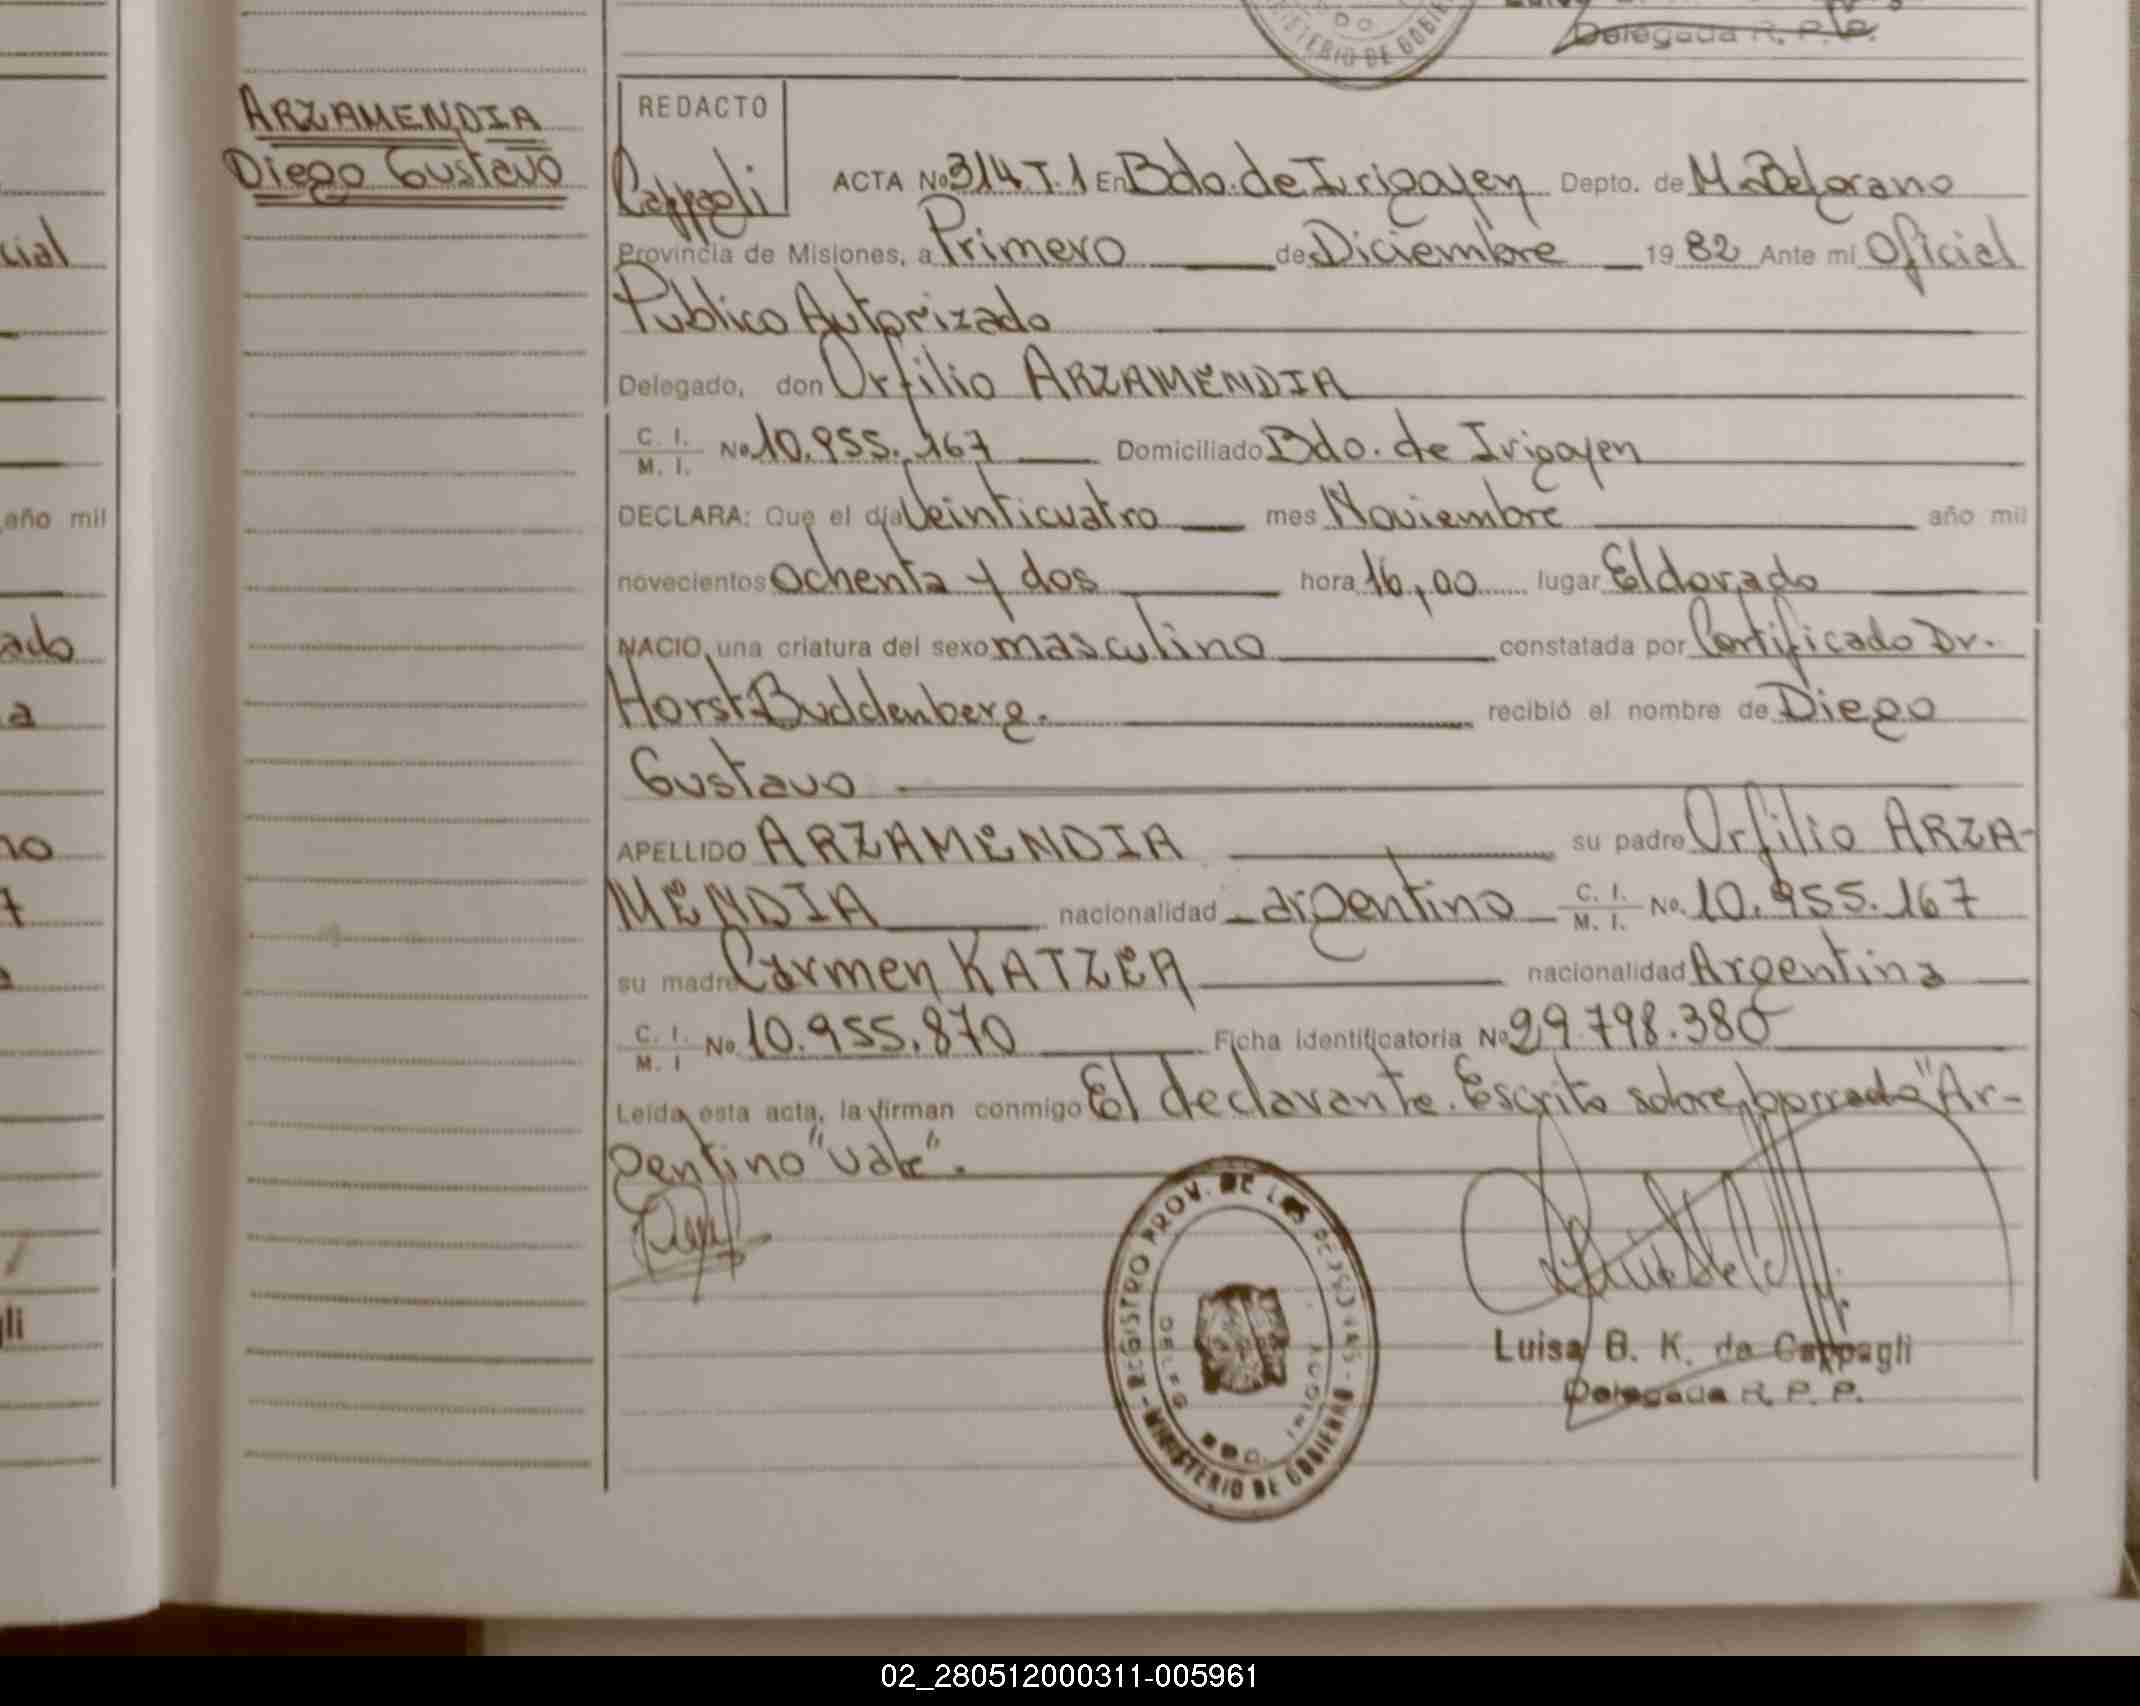 MINISTERIO DE GOBIERNO
Delegada R. P. P.
ARZAMENDIA
Diego Gustavo
REDACTO
Cappagli
ACTA No 314 T.1 En Bdo. de Irigoyen Depto. de M. Belgrano
Provincia de Misiones, a Primero de Diciembre 1982 Ante mi Oficial
Publico Autorizado
Delegado, don Orfilio ARZAMENDIA
C. I. M. I. No 10.955.167 Domiciliado Bdo. de Irigoyen
DECLARA: Que el día Veinticuatro mes Noviembre año mil
novecientos ochenta y dos hora 16,00 lugar Eldorado
NACIO, una criatura del sexo masculino constatada por Certificado Dr.
Horst Buddenberg. recibió el nombre de Diego
Gustavo
APELLIDO ARZAMENDIA su padre Orfilio ARZA-
MENDIA nacionalidad argentino C. I. M. I. No. 10.955.167
su madre Carmen KATZER nacionalidad Argentina
C. I. M. I No. 10.955.870 Ficha identificatoria No 29.798.380
Leída esta acta, la firman conmigo El declarante. Escrito sobre borrado "Ar-
gentino" vale".
REGISTRO PROV. DE LAS PERSONAS - MINISTERIO DE GOBIERNO
Luisa B. K. de Cappagli
Delegada R. P. P.
cial
año mil
ado
a
no
7
gli
02_280512000311-005961